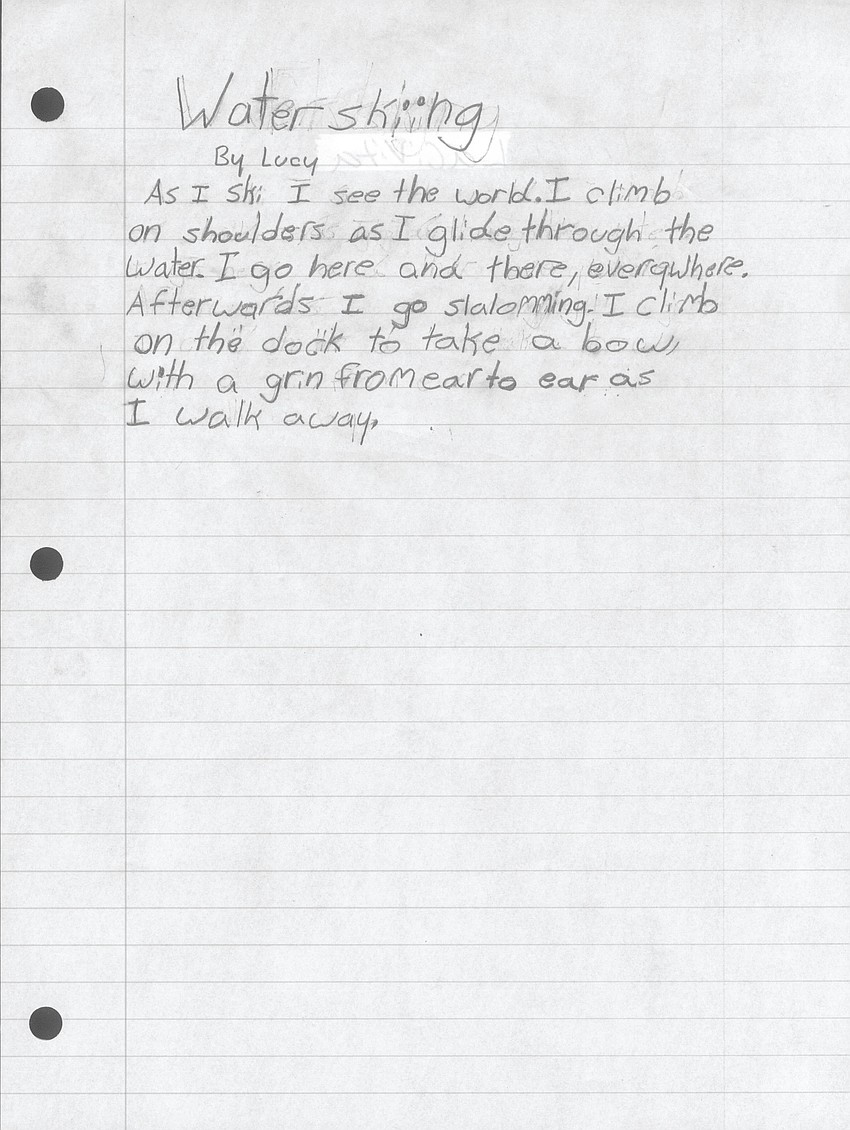 Water skiing
By Lucy
As I ski I see the world. I climb
on shoulders as I glide through the
water. I go here and there, everywhere.
Afterwards I go slalomming. I climb
on the dock to take a bow,
with a grin from ear to ear as
I walk away.